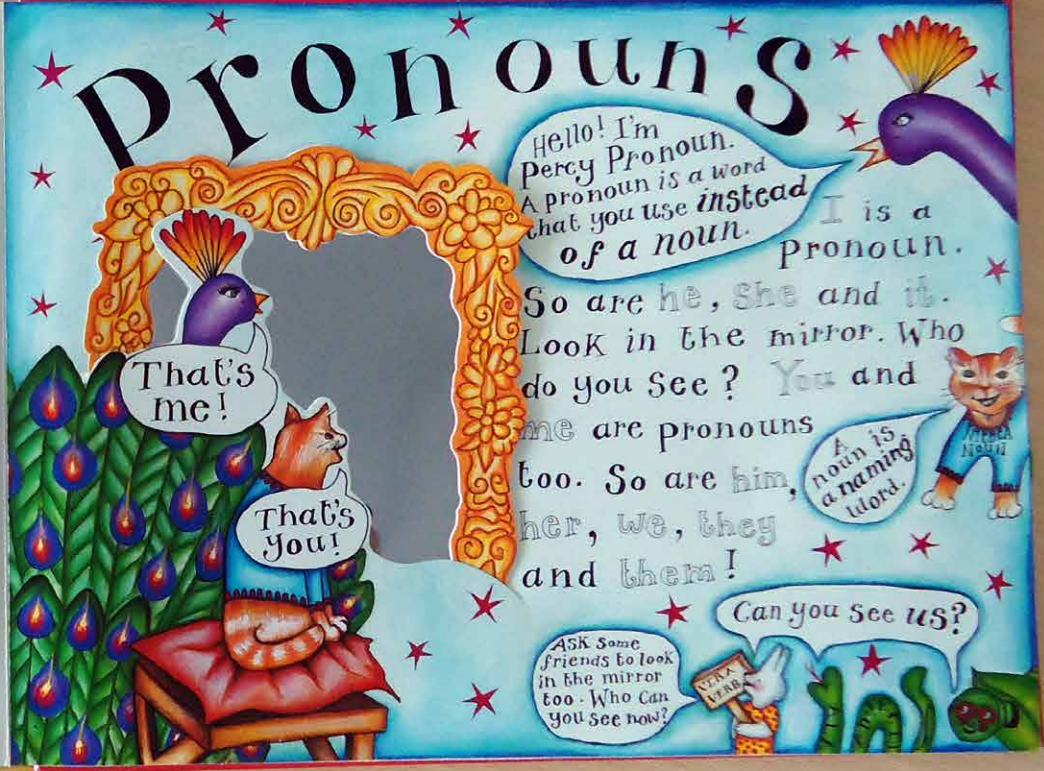 Pronouns
Hello! I'm
Percy Pronoun.
A pronoun is a word
that you use instead
of a noun.
I is a
Pronoun.
So are he, she and it.
Look in the mirror. Who
do you see? You and
me are pronouns
too. So are him,
her, we, they
and them!
That's
me!
That's
You!
A
noun is
a naming
Word.
NOUN
Can you see us?
ASK Some
friends to look
in the mirror
too. Who Can
you see now?
VERA
VERB